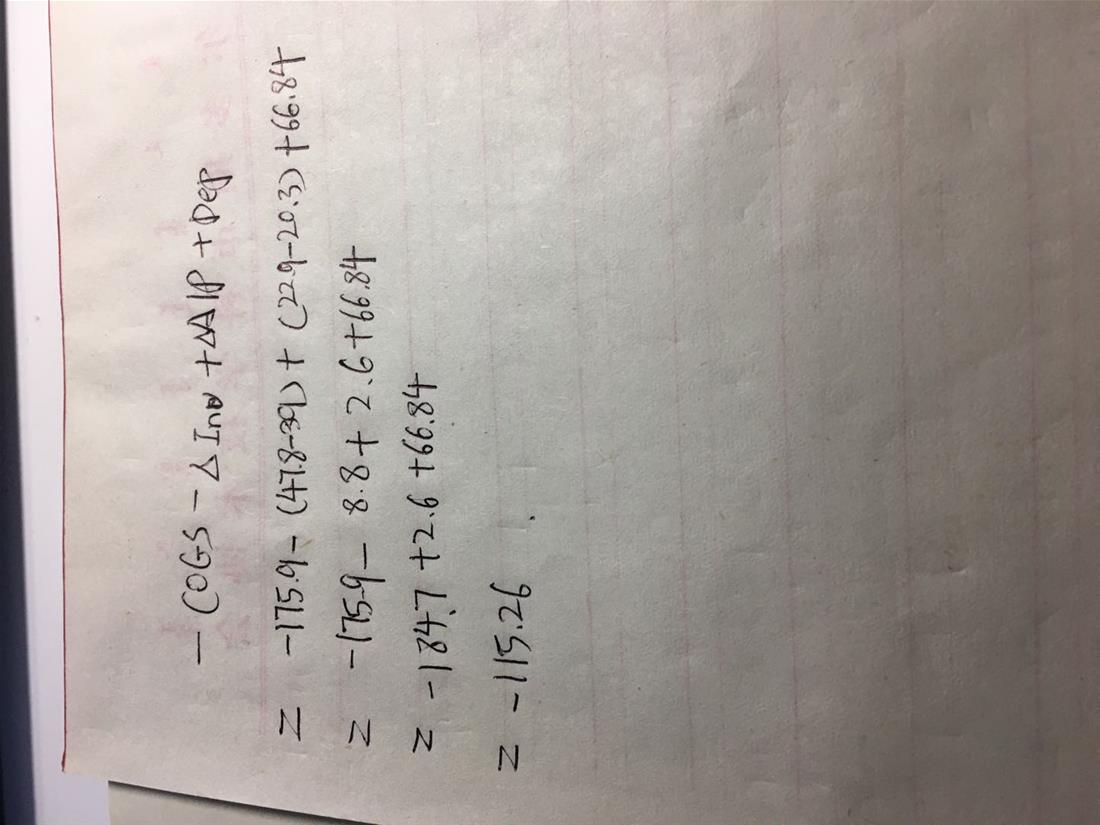 - COGS - Δ Inv + ΔA/P + Dep
= -175.9 - (47.8-39) + (22.9-20.3) + 66.84
= -175.9 - 8.8 + 2.6 + 66.84
= -184.7 + 2.6 + 66.84
= -115.26